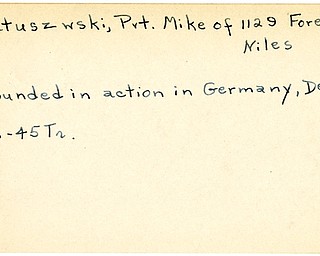 tuszwski, Pvt. Mike of 1129 Fore
Niles
ounded in action in Germany, De
-45 Tr.